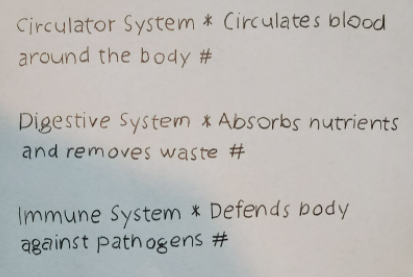 Circulator System * Circulates blood
around the body #
Digestive System * Absorbs nutrients
and removes waste #
Immune System * Defends body
against pathogens #